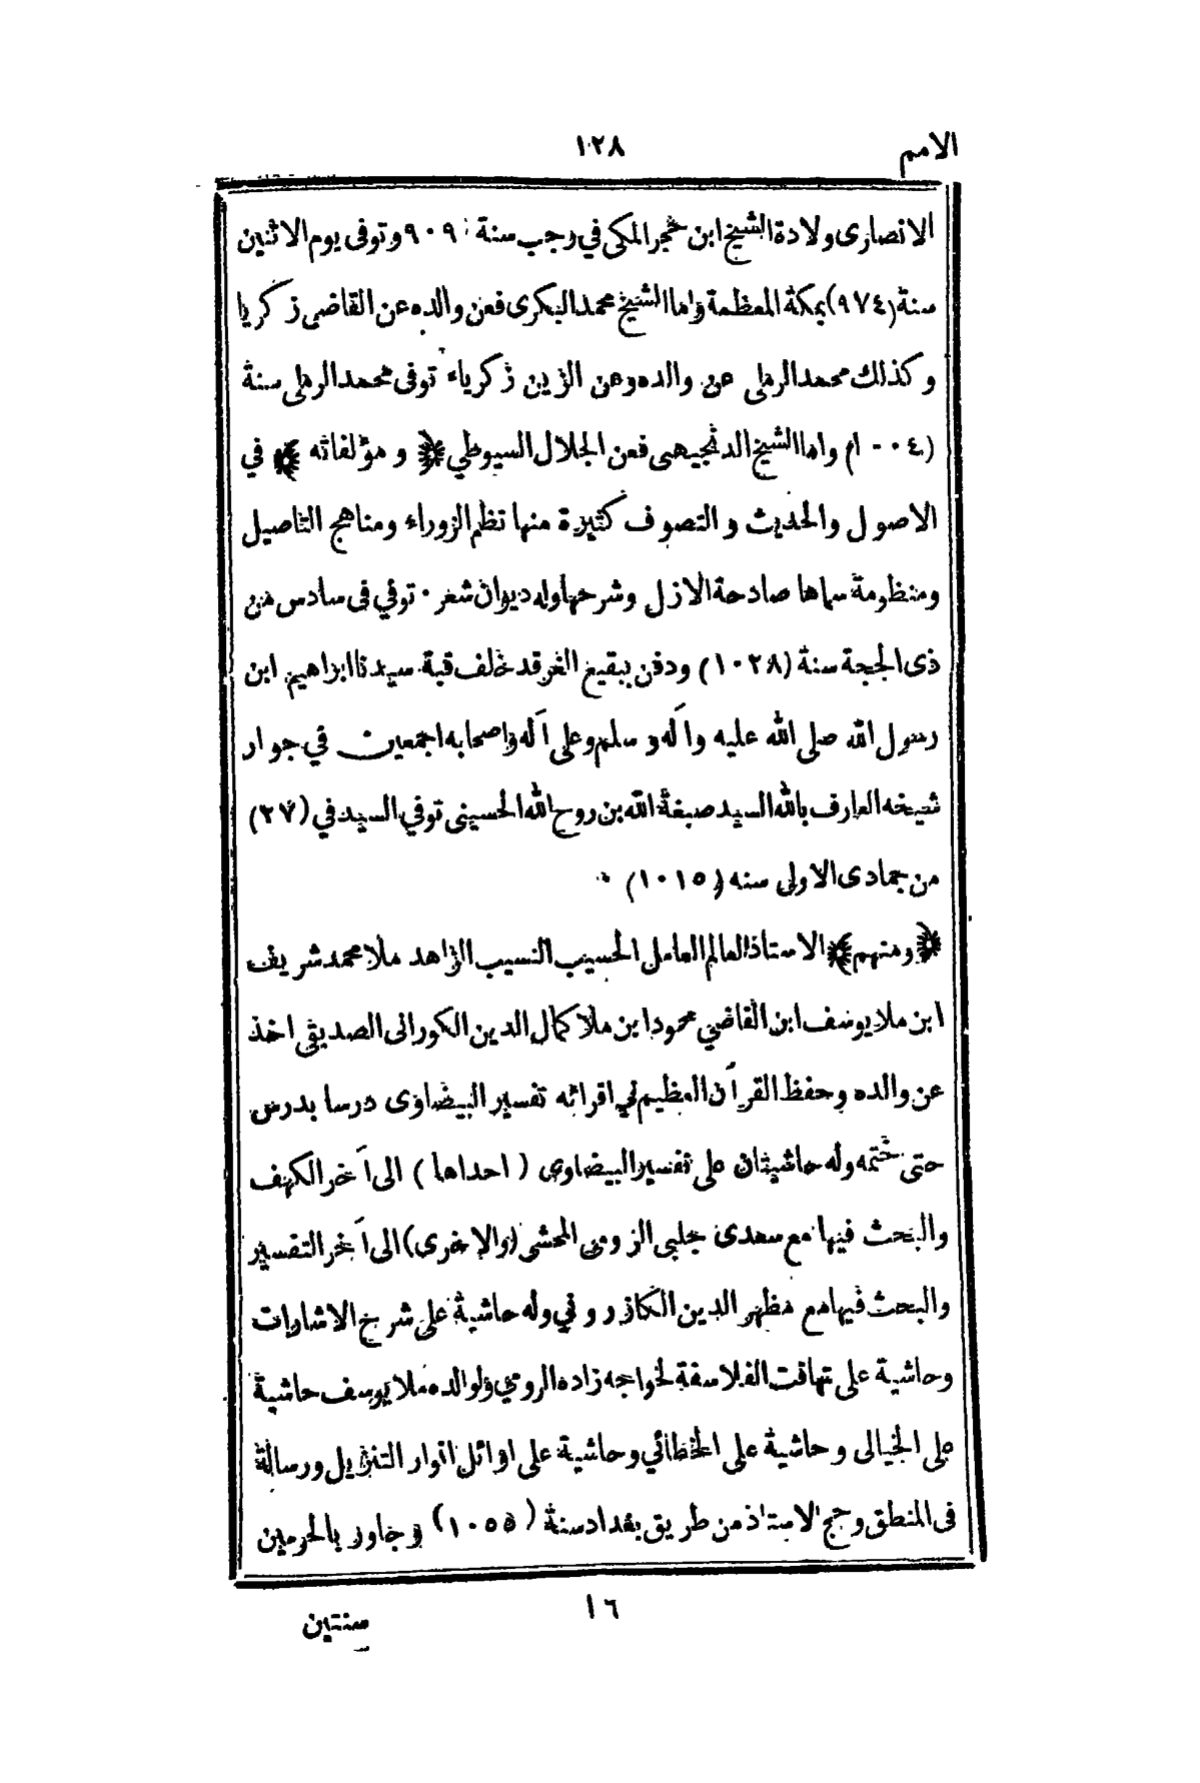 الامم
١٢٨
الانصارى ولادة الشيخ ابن حجر المكي في رجب سنة ٩٠٩ وتوفى يوم الاثنين
سنة (٩٧٤) بمكة المعظمة واما الشيخ محمد البكرى فعن والده عن القاضى زكريا
وكذلك محمد الرملى عن والده وعن الزين زكرياء توفى محمد الرملى سنة
(١٠٠٤) واما الشيخ الدنجيهى فعن الجلال السيوطي ﴿ و مؤلفاته ﴾ في
الاصول والحديث و التصوف كثيرة منها نظم الزوراء ومناهج التاصيل
ومنظومة سماها صادحة الازل وشرحها وله ديوان شعر . توفي فى سادس من
ذى الحجة سنة (١٠٢٨) ودفن ببقيع الغرقد خلف قبة سيدنا ابراهيم ابن
رسول الله صلى الله عليه وآله وسلم وعلى آله واصحابه اجمعين في جوار
شيخه العارف بالله السيد صبغة الله بن روح الله الحسينى توفي السيد في (٢٧)
من جمادى الاولى سنه (١٠١٥) .
﴿ومنهم﴾ الاستاذ العالم العامل الحسيب النسيب الزاهد ملا محمد شريف
ابن ملا يوسف ابن القاضي محمود ابن ملا كمال الدين الكورانى الصديقى اخذ
عن والده وحفظ القرآن العظيم في اقرائه تفسير البيضاوى درسا بدرس
حتى ختمه وله حاشيتان على تفسير البيضاوى ( احداها ) الى آخر الكهف
والبحث فيها مع سعدى جلبى الرومى المحشى (والاخرى) الى آخر التفسير
والبحث فيها مع مظهر الدين الكازروني وله حاشية على شرح الاشارات
وحاشية على تهافت الفلاسفة لخواجه زاده الرومي ولوالده ملا يوسف حاشية
على الخيالى وحاشية على الخطائي وحاشية على اوائل انوار التنزيل ورسالة
فى المنطق وحج الاستاذ من طريق بغداد سنة (١٠٥٥) وجاور بالحرمين
١٦
سنتين